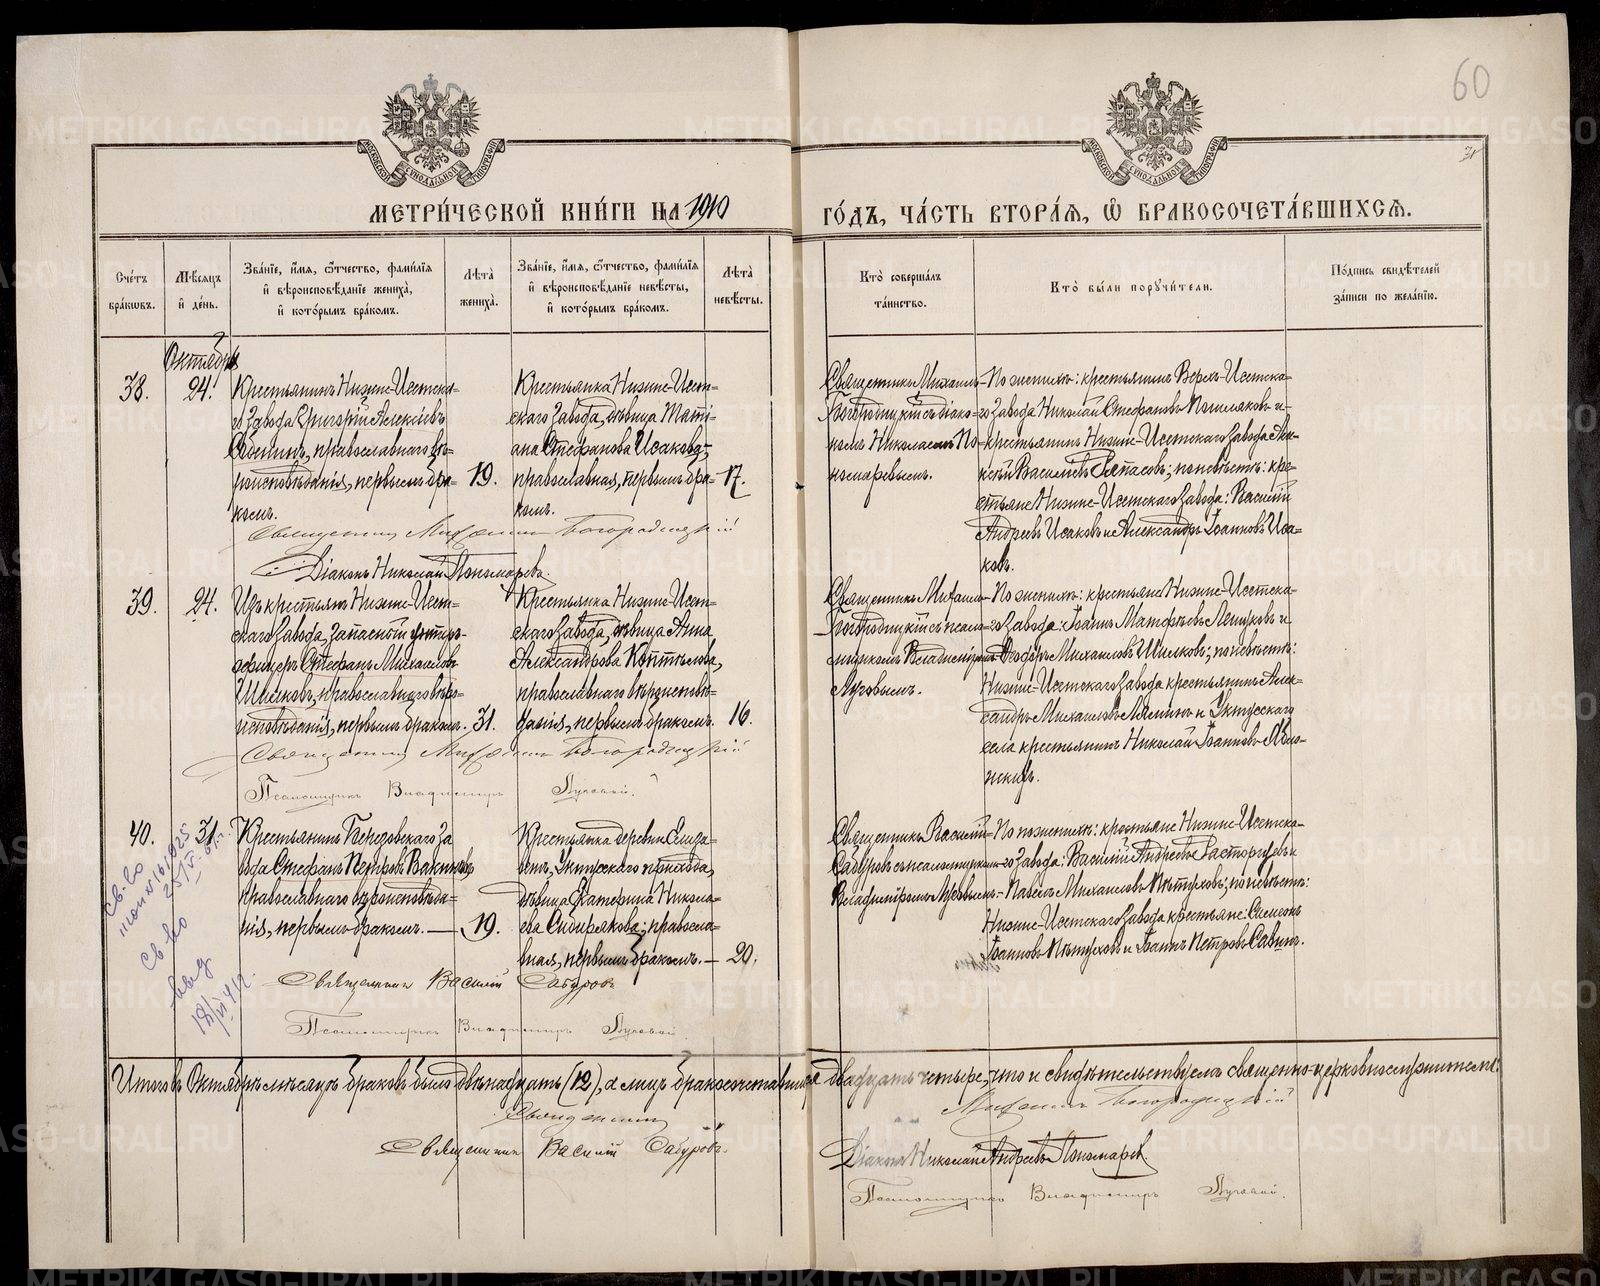 60
31
МЕТРИ́ЧЕСКОЙ КНИ́ГИ НА 1910
ГО́ДЪ, ЧА́СТЬ ВТОРА́Ѧ, Ѡ҆ БРАКОСОЧЕТА́ВШИХСѦ.
МОСКОВСКОЙ СѴНОДАЛЬНОЙ ТИПОГРАФІИ
МОСКОВСКОЙ СѴНОДАЛЬНОЙ ТИПОГРАФІИ
Сче́тъ
бра́кѡвъ.
Мѣ́сѧцъ
и҆ де́нь.
Зва́нїе, и҆́мѧ, ѻ҆́тчество, фамѝлїѧ
и҆ вѣроисповѣ́данїе жениха̀,
и҆ кото́рымъ бра́комъ.
Лѣ́та
жениха̀.
Зва́нїе, и҆́мѧ, ѻ҆́тчество, фамѝлїѧ
и҆ вѣроисповѣ́данїе невѣ́сты,
и҆ кото́рымъ бра́комъ.
Лѣ́та
невѣ́сты.
Кто̀ соверша́лъ
та́инство.
Кто̀ бы́ли порꙋчи́тели.
По́дпись свидѣ́телей
за́писи по жела́нїю.
Октябрь
38.
24.
Крестьянинъ Нижне-Исетска-
го завода Григорій Алексѣевъ
православнаго вѣ-
роисповѣданія, первымъ бра-
комъ.
19.
Крестьянка Нижне-Исет-
скаго завода, дѣвица Тати-
ана Стефанова Исакова,
православная, первымъ бра-
комъ.
17.
Священникъ Михаилъ
Богородицкій съ діако-
номъ Николаемъ По-
номаревымъ.
По женихѣ: крестьянинъ Верхъ-Исетска-
го завода Николай Стефановъ и
крестьянинъ Нижне-Исетскаго завода
Василіевъ по невѣстѣ: кре-
стьяне Нижне-Исетскаго завода: Василій
Андреевъ Исаковъ и Александръ Іоанновъ Иса-
ковъ.
Священникъ Михаилъ Богородицкій
Діаконъ Николай Пономаревъ.
39.
24.
Изъ крестьянъ Нижне-Исет-
скаго завода, запасный унтеръ-
офицеръ Стефанъ Михаиловъ
Шилковъ, православнаго вѣро-
исповѣданія, первымъ бракомъ.
31.
Крестьянка Нижне-Исет-
скаго завода, дѣвица Анна
Александрова Коптѣлова,
православнаго вѣроисповѣ-
данія, первымъ бракомъ.
16.
Священникъ Михаилъ
Богородицкій съ псалом-
щикомъ Владиміромъ
Луговымъ.
По женихѣ: крестьяне Нижне-Исетска-
го завода: Іоаннъ Матфѣевъ и
Ѳеодоръ Михаиловъ Шилковъ; по невѣстѣ:
Нижне-Исетскаго завода крестьянинъ Алек-
сандръ Михаиловъ и Уктусскаго
села крестьянинъ Николай Іоанновъ
Священникъ Михаилъ Богородицкій
Псаломщикъ Владиміръ Луговой.
40.
31.
Крестьянинъ Березовскаго за
вода Стефанъ Петровъ
православнаго вѣроисповѣда-
нія, первымъ бракомъ.
19.
Крестьянка деревни Елиза-
ветъ, Уктусскаго прихода,
дѣвица Екатерина Никола-
ева Сибирякова, правосла-
вная, первымъ бракомъ.
20.
Священникъ Василій
Сабуровъ съ псаломщикомъ
Владиміромъ Луговымъ.
По женихѣ: крестьяне Нижне-Исетска-
го завода: Василій Андреевъ Расторгуевъ и
Павелъ Михаиловъ Пѣтуховъ; по невѣстѣ:
Нижне-Исетскаго завода крестьяне: Симеонъ
Іоанновъ Пѣтуховъ и Іоаннъ Петровъ Савинъ.
Св-во
Св-во
выд
Священникъ Василій Сабуровъ
Псаломщикъ Владиміръ Луговой
Итого въ Октябрѣ мѣсяцѣ браковъ было двѣнадцать (12), а лицъ бракосочетавшихся двадцать четыре, что и свидѣтельствуемъ священно-церковнослужители:
Священникъ Михаилъ Богородицкій
Священникъ Василій Сабуровъ.
Діаконъ Николай Андреевъ Пономаревъ.
Псаломщикъ Владиміръ Луговой.
METRIKI.GASO-URAL.RU